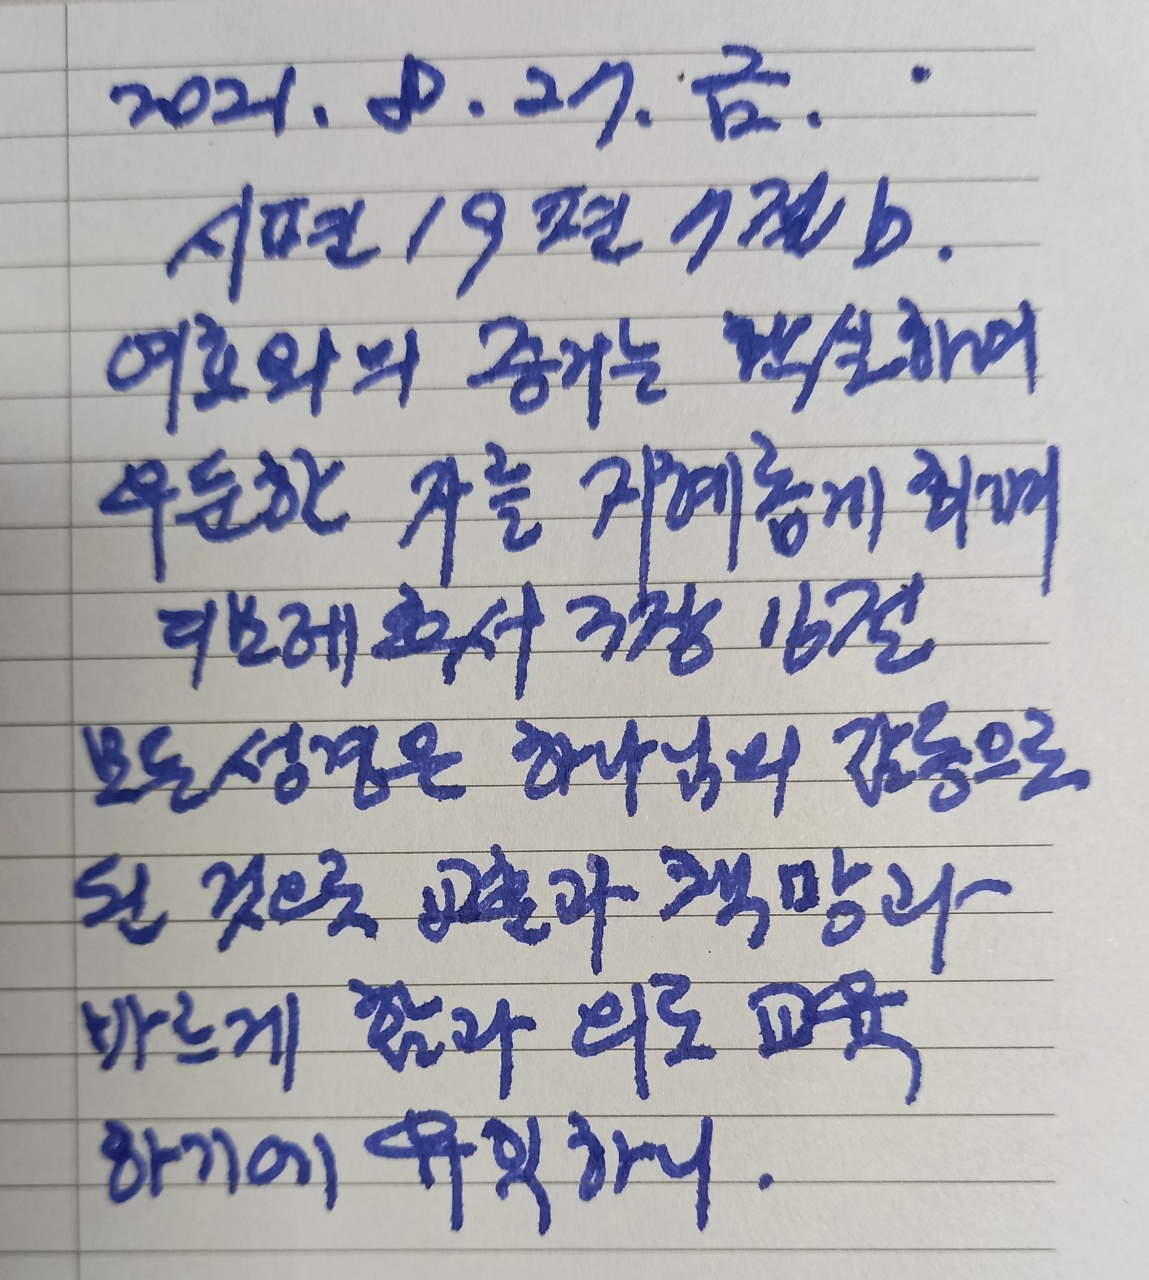 2021. 8. 27. 금.
시편 19편 7절 b.
여호와의 증거는 확실하며
우둔한 자를 지혜롭게 하며
디모데후서 3장 16절
모든 성경은 하나님의 감동으로
된 것으로 교훈과 책망과
바르게 함과 의로 교육
하기에 유익하니.